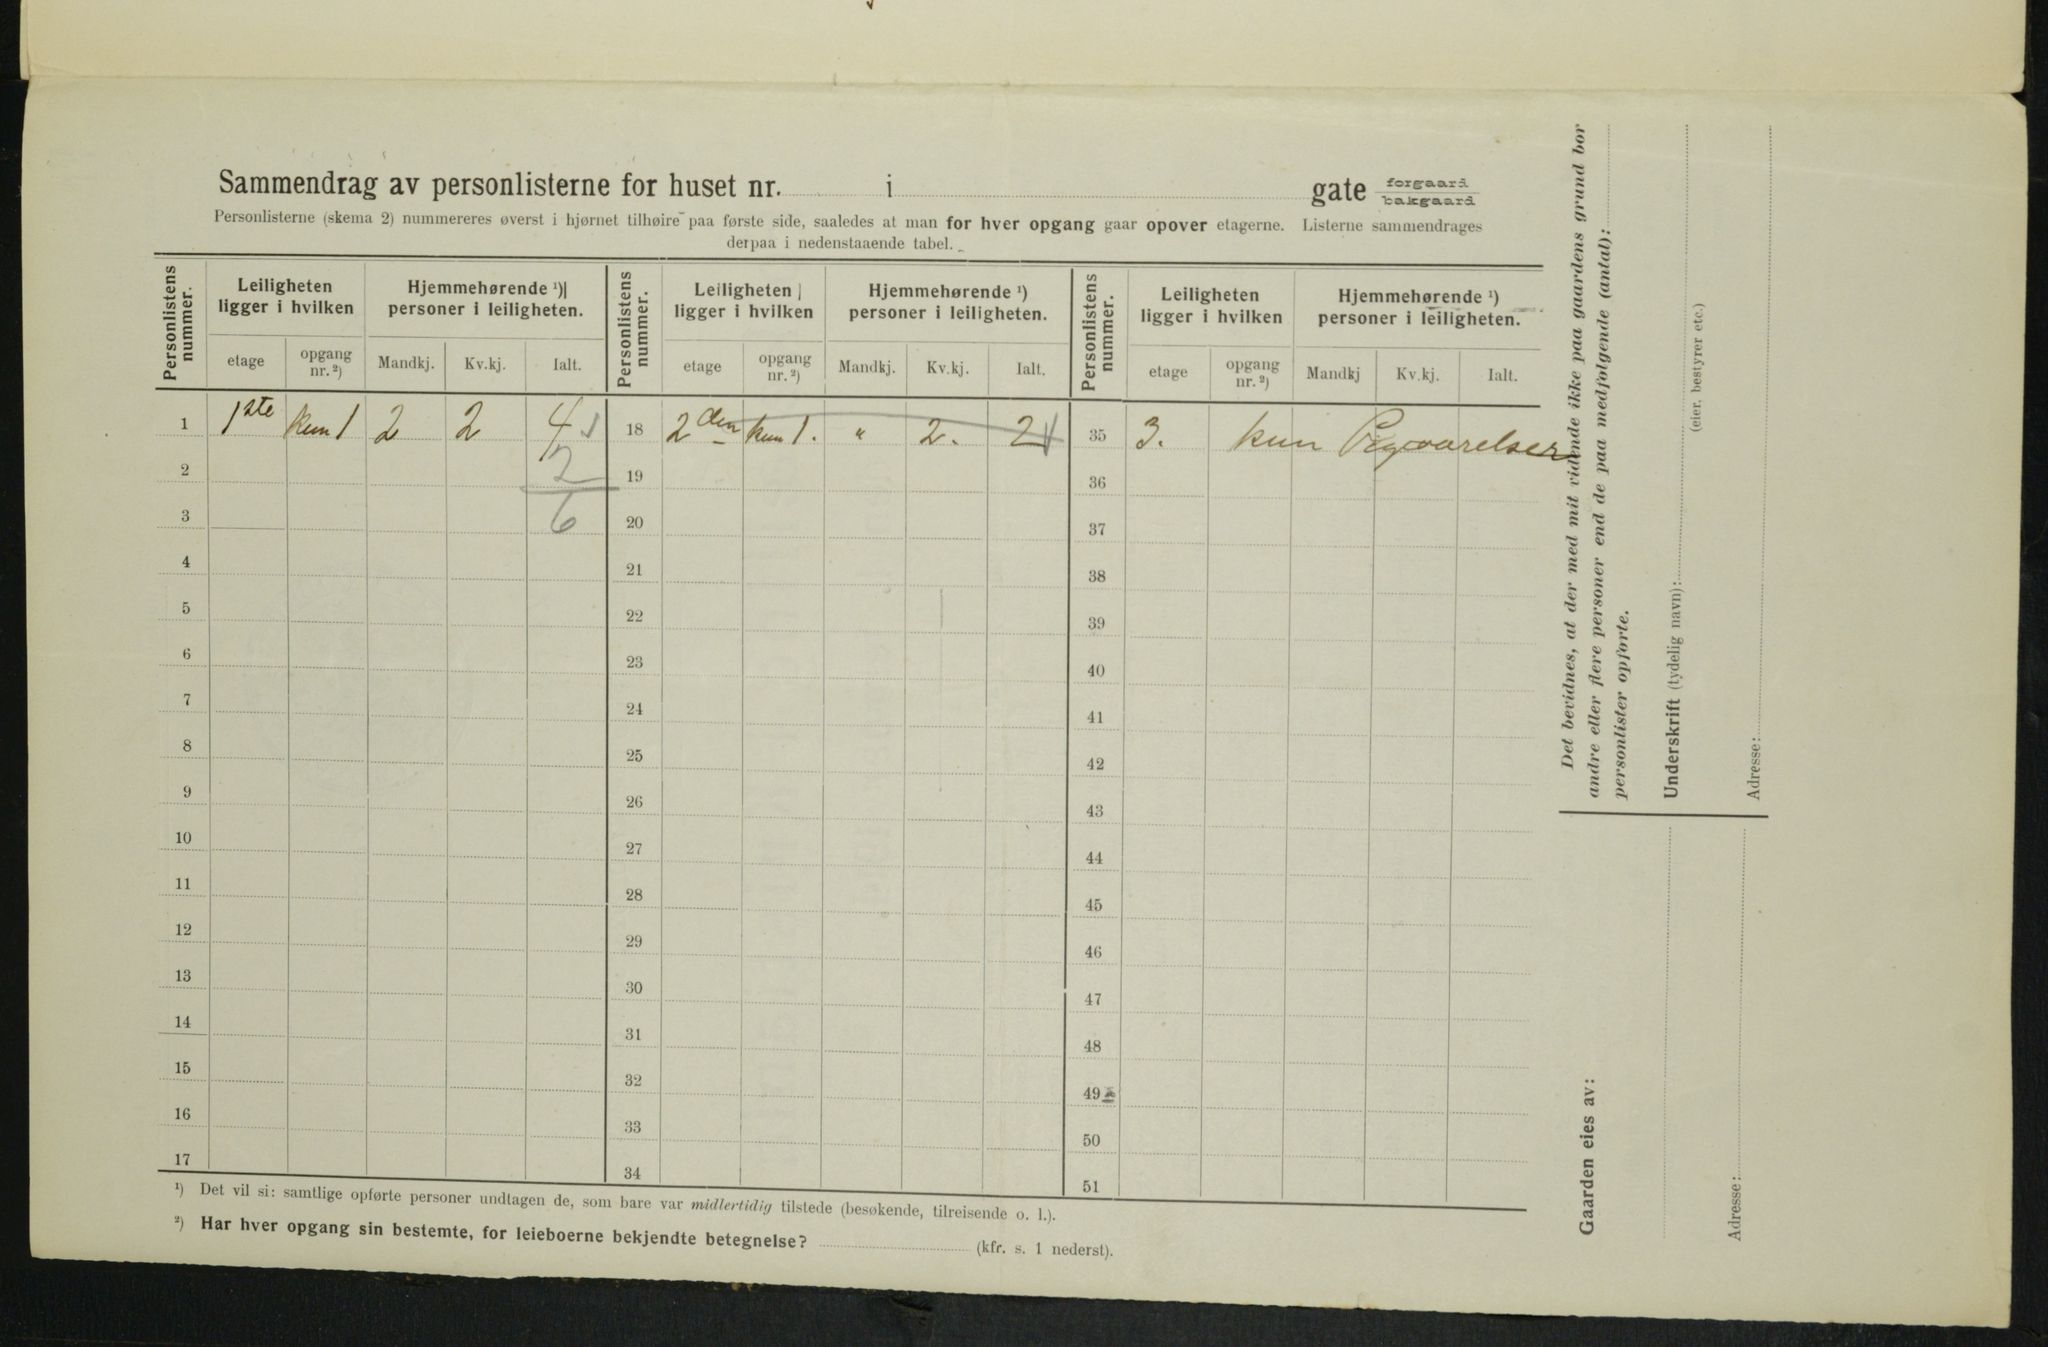 Sammendrag av personlisterne for huset nr. i gate forgaard bakgaard
Personlisterne (skema 2) nummereres øverst i hjørnet tilhøire paa første side, saaledes at man for hver opgang gaar opover etagerne. Listerne sammendrages
derpaa i nedenstaaende tabel.
Personlistens nummer. Leiligheten ligger i hvilken Hjemmehørende ¹) personer i leiligheten. Personlistens nummer. Leiligheten ligger i hvilken Hjemmehørende ¹) personer i leiligheten. Personlistens nummer. Leiligheten ligger i hvilken Hjemmehørende ¹) personer i leiligheten.
etage opgang nr. ²) Mandkj. Kv.kj. Ialt. etage opgang nr. ²) Mandkj. Kv.kj. Ialt. etage opgang nr. ²) Mandkj Kv.kj. Ialt.
1 1ste kun 1 2 2 4 18 2den kun 1. " 2. 2 35 3. kun Pigeværelser
2 2 19 36
3 6 20 37
4 21 38
5 22 39
6 23 40
7 24 41
8 25 42
9 26 43
10 27 44
11 28 45
12 29 46
13 30 47
14 31 48
15 32 49
16 33 50
17 34 51
¹) Det vil si: samtlige opførte personer undtagen de, som bare var midlertidig tilstede (besøkende, tilreisende o. l.).
²) Har hver opgang sin bestemte, for leieboerne bekjendte betegnelse? (kfr. s. 1 nederst).
Det bevidnes, at der med mit vidende ikke paa gaardens grund bor
andre eller flere personer end de paa medfølgende (antal):
personlister opførte.
Underskrift (tydelig navn):
(eier, bestyrer etc.)
Adresse:
Gaarden eies av:
Adresse: